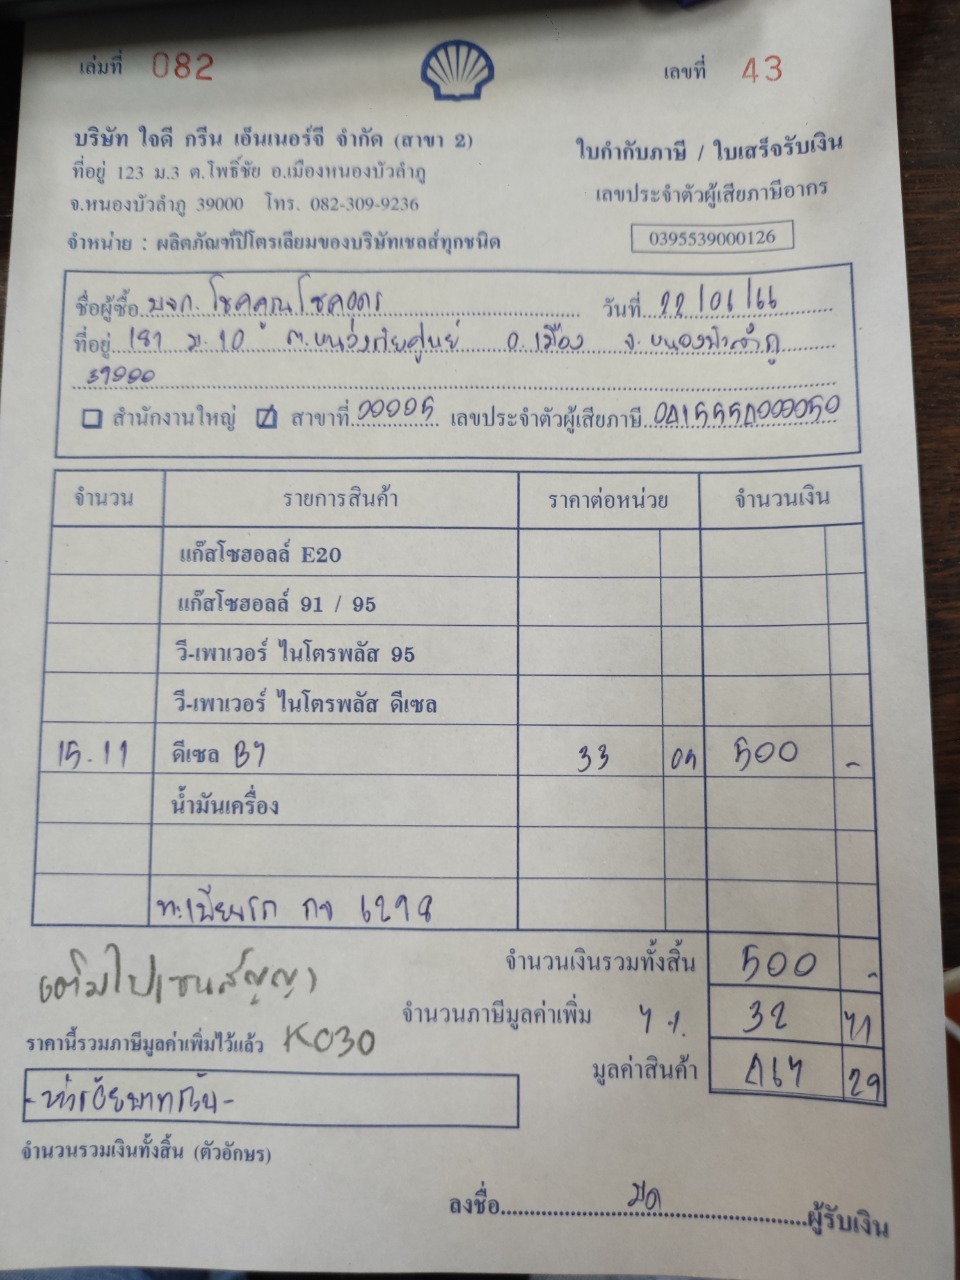 เล่มที่ 082
เลขที่ 43
บริษัท ใจดี กรีน เอ็นเนอร์จี จำกัด (สาขา 2)
ที่อยู่ 123 ม.3 ต.โพธิ์ชัย อ.เมืองหนองบัวลำภู
จ.หนองบัวลำภู 39000 โทร. 082-309-9236
จำหน่าย : ผลิตภัณฑ์ปิโตรเลียมของบริษัทเชลล์ทุกชนิด
ใบกำกับภาษี / ใบเสร็จรับเงิน
เลขประจำตัวผู้เสียภาษีอากร
0395539000126
ชื่อผู้ซื้อ บจก. โชคคูณโชคอุดร วันที่ 22/06/66
ที่อยู่ 181 ม.10 อ.เมือง จ.หนองบัวลำภู
39000
สำนักงานใหญ่ สาขาที่ 00005 เลขประจำตัวผู้เสียภาษี 0415554000050
จำนวน รายการสินค้า ราคาต่อหน่วย จำนวนเงิน
แก๊สโซฮอลล์ E20
แก๊สโซฮอลล์ 91 / 95
วี-เพาเวอร์ ไนโตรพลัส 95
วี-เพาเวอร์ ไนโตรพลัส ดีเซล
15.11 ดีเซล B7 33 09 500 -
น้ำมันเครื่อง
ทะเบียนรถ กจ 6298
จำนวนเงินรวมทั้งสิ้น 500 -
เติมไปเซนสัญญา
จำนวนภาษีมูลค่าเพิ่ม 7 % 32 71
ราคานี้รวมภาษีมูลค่าเพิ่มไว้แล้ว K030
มูลค่าสินค้า 467 29
-ห้าร้อยบาทถ้วน-
จำนวนรวมเงินทั้งสิ้น (ตัวอักษร)
ลงชื่อ ผู้รับเงิน